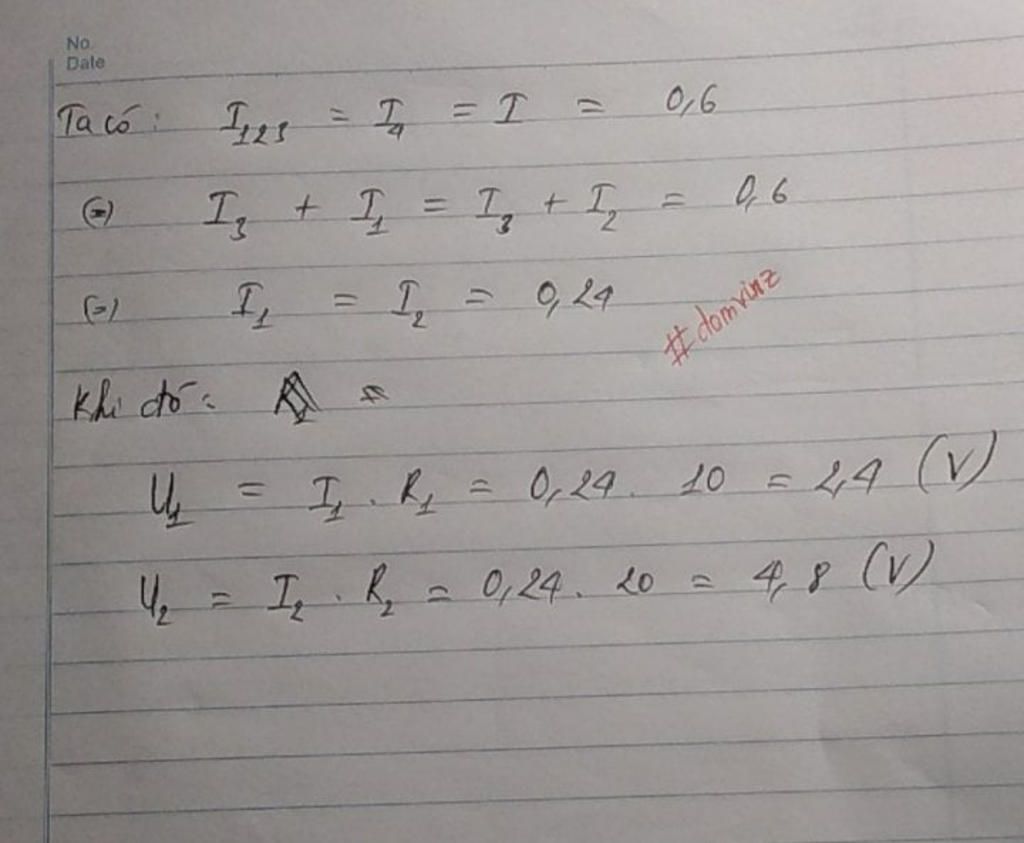 No.
Date
Ta có: I₁₂₃ = I₄ = I = 0,6
(=) I₃ + I₁ = I₃ + I₂ = 0,6
(=) I₁ = I₂ = 0,24
#domvinz
Khi đó: =
U₁ = I₁ . R₁ = 0,24 . 10 = 2,4 (V)
U₂ = I₂ . R₂ = 0,24 . 20 = 4,8 (V)